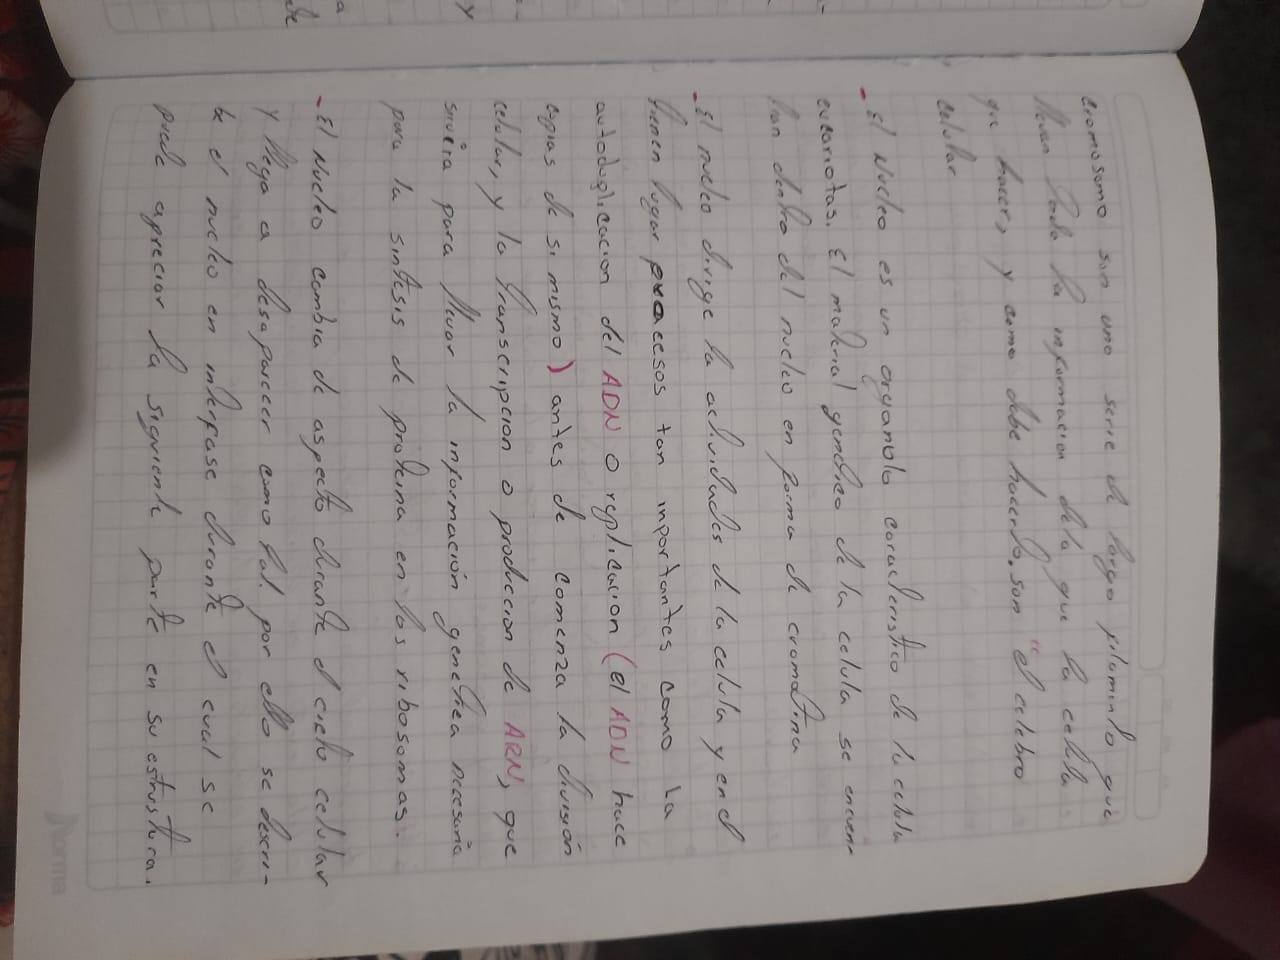 cromosomo son uno serie de largo filamindo que
llevan toda la informacion dela que la celula
que hacer, y como debe hacerlo. son "el celebro
celular
- El Nucleo es un organulo caracteristico de la celula
eucariotas. El material genetico de la celula se encuen-
tran dentro del nucleo en forma de cromatina
- El nucleo dirige la actividades de la celula y en el
tienen lugar proaccesos tan importantes como la
autoduglicacion del ADN o replicacion (el ADN hace
copias de si mismo) antes de comenza la division
celular, y la transcripcion o produccion de ARN, que
servira para llevar la información genetica necesaria
para la sintesis de proteina en los ribosomas.
- El Nucleo cambia de aspecto durante el ciclo celular
y llega a desaparecer como tal. por ello se descri-
be el nucleo en interfase durante el cual se
puede apreciar la siguiente parte en su estrustura.
Norma